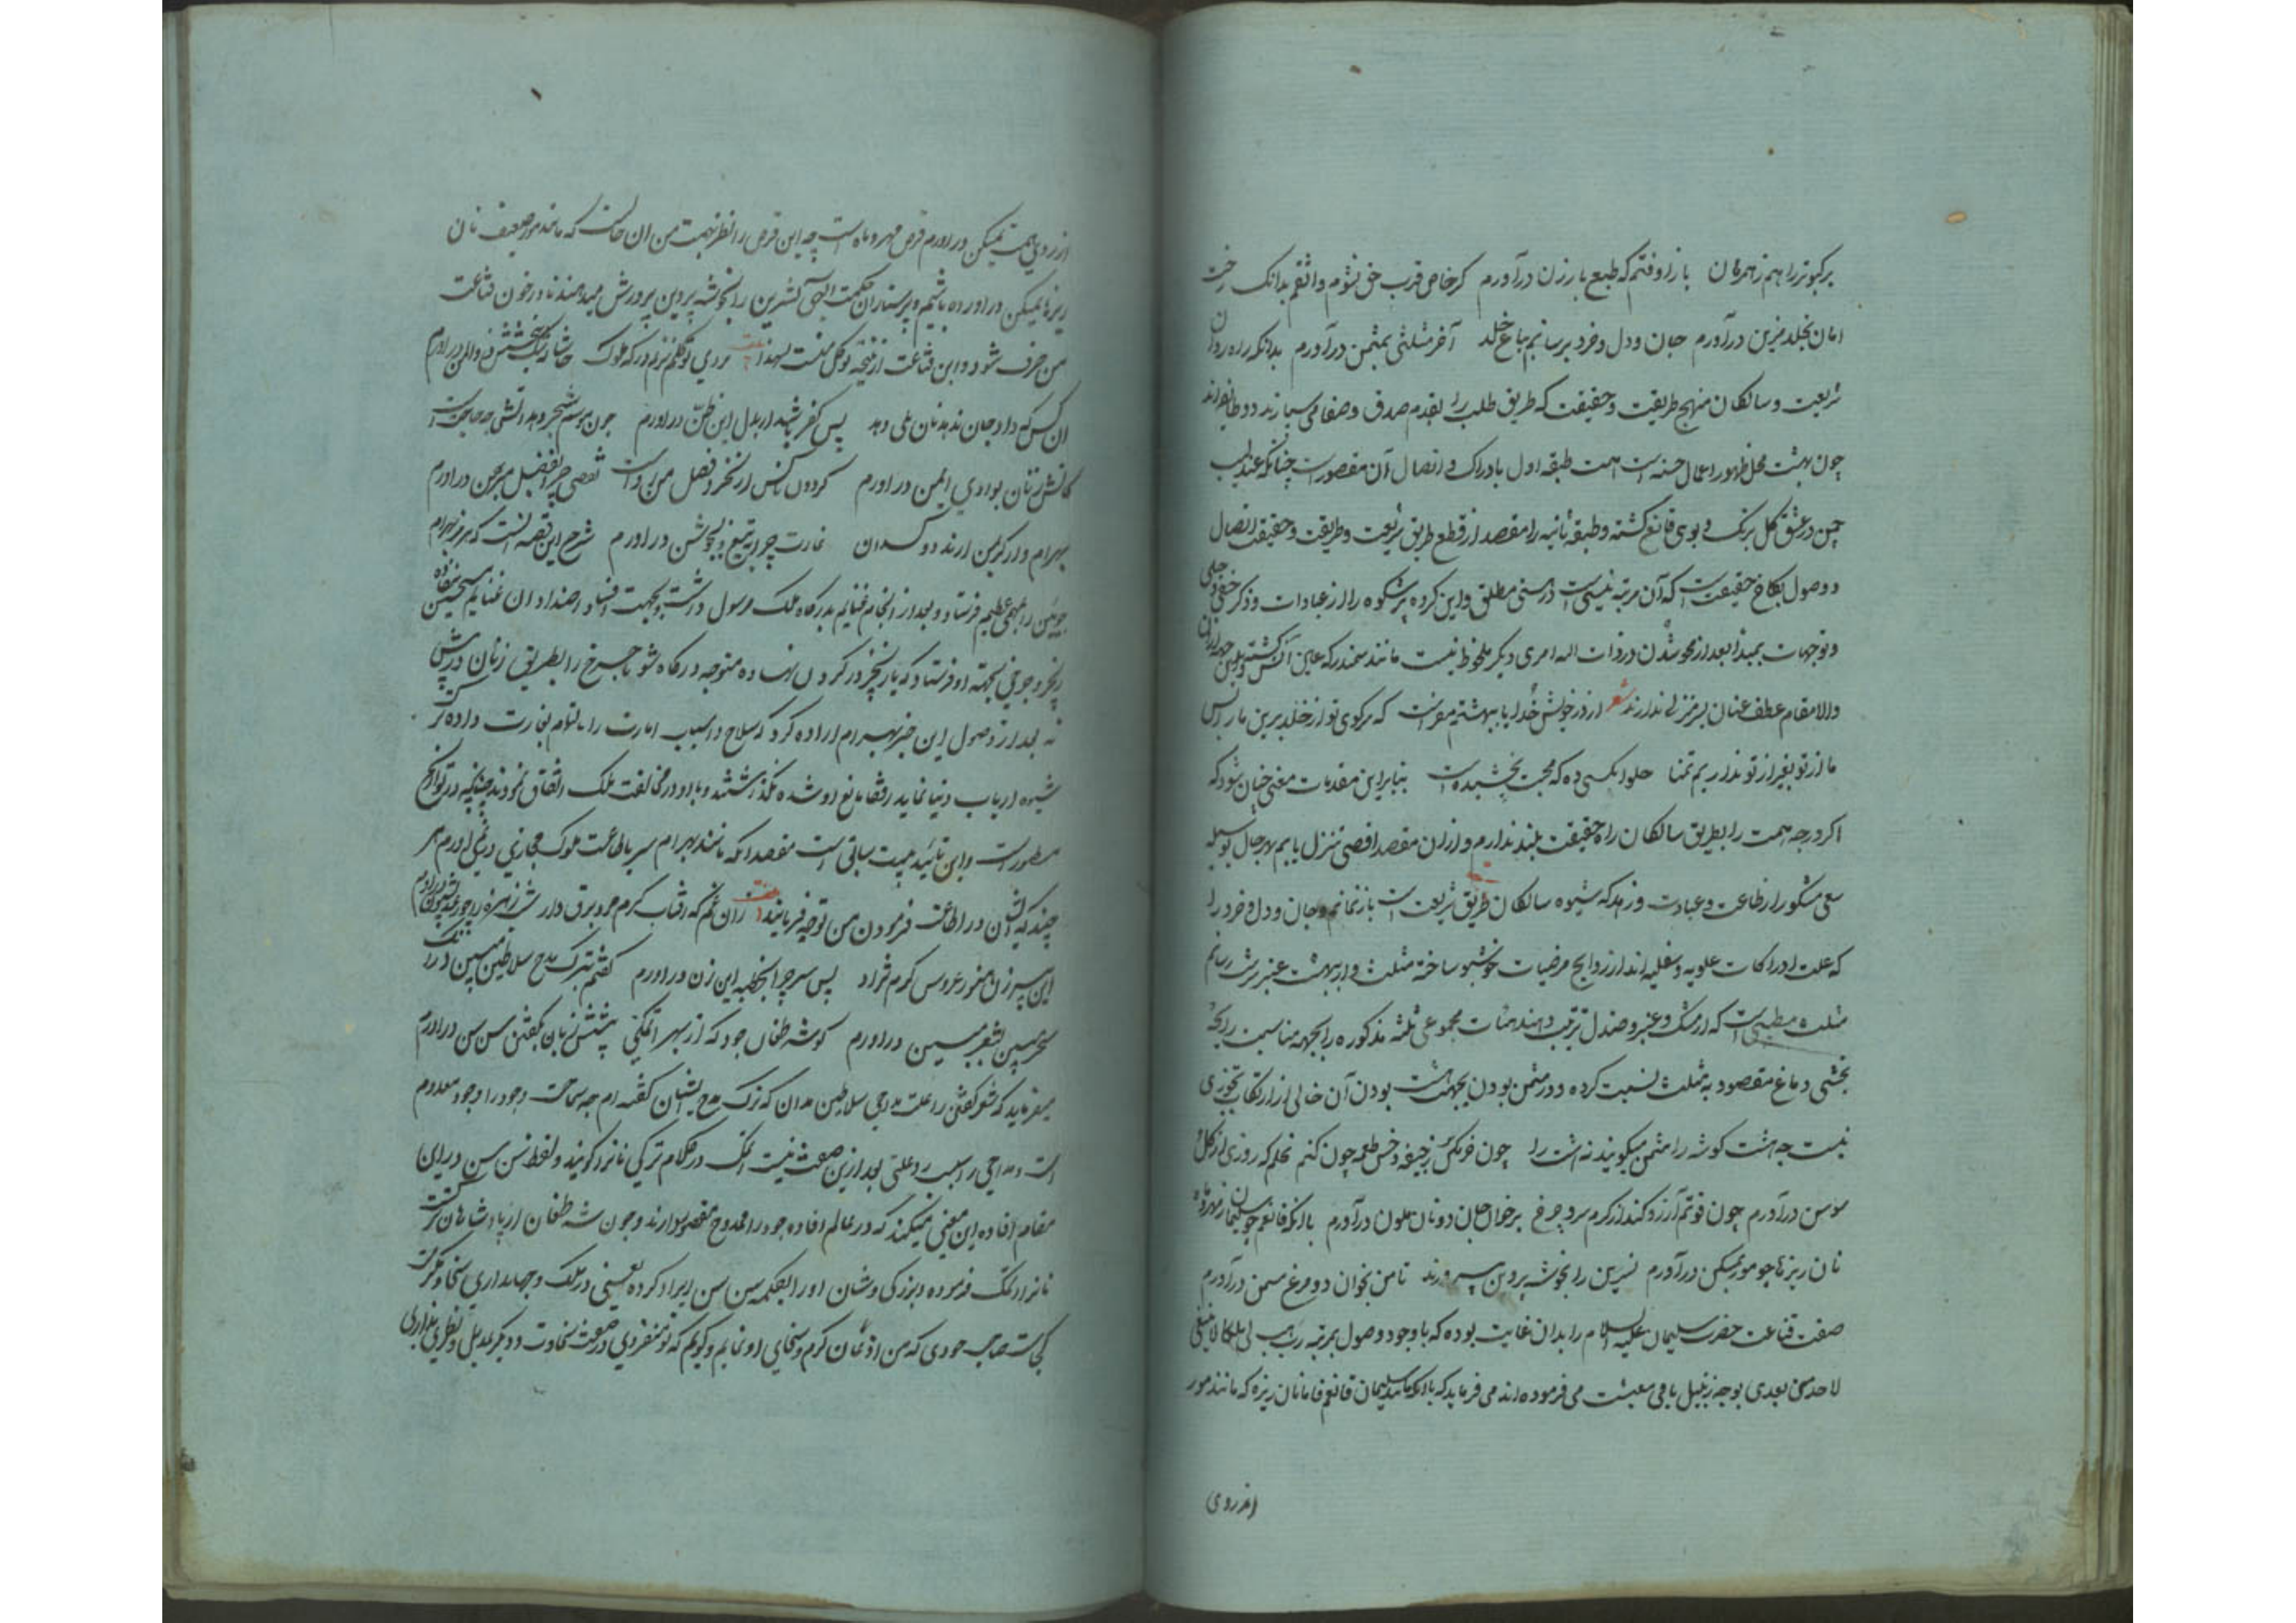 برکبوتر را هم زاهرمان بازار وفتم که طبع بارزن درآورم کر خاص قرب حق نشوم واثقم بدانک رخت
امان بخلد مزین درآورم جان ودل وخرد برسانم بباغ خلد آخر مثلثی بمثمن درآورم بدانکه راه روان
شریعت وسالکان منهج طریقت وحقیقت که طریق طلب را بقدم صدق وصفا می سپارند دو طایفه اند
چون بهشت محل ظهور اعمال حسنه است همت طبقه اول بادراک و اتصال آن مقصورست چنانکه عندلیب
چمن در عشق کل برنک و بوی قانع کشته وطبقه ثانیه را مقصد از قطع طریق شریعت وطریقت وحقیقت اتصال
و وصول بکاخ حقیقت است که آن مرتبه نیستی است در هستی مطلق واین کروه پر شکوه را از عبادات وذکر خفی و جلی
وتوجهات بمبدا بعد از محو شدن در ذات اله امری دیکر ملحوظ نیست مانند سمندر که عین آتش کشته
والا مقام عطف عنان بهر منزلی ندارند شعر از در خویش خدا یا ببهشتم مفرست که سرکوی تو از خلد برین ما را بس
ما از تو بغیر از تو نداریم تمنا حلوا بکسی ده که محبت نچشیدست بنابراین مقدمات معنی چنان شود که
اکر درجه همت را بطریق سالکان راه حقیقت بلند ندارم و از آن مقصد اقصی تنزل یابم بهر حال بوسیله
سعی مشکور از طاعت وعبادت وزهد که شیوه سالکان طریق شریعت است باز نمانم وجان ودل وخرد را
که علت ادراکات علویه وسفلیه اند از روایح مرضیات خوشبو ساخته مثلث وار ببهشت عنبر سرشت رسانم
مثلث مطیبی است که از مشک وعنبر وصندل ترتیب دهند هیئات مجموعی ثلثه مذکوره را بجهة مناسبت رایحه
بخشی دماغ مقصود به مثلث نسبت کرده و در مثمن بودن بجهت هشت بودن آن خالی از ارتکاب تجوزی
نیست چه هشت کوشه را مثمن میکویند نه هشت را چون خرمکس ز جیفه وخس طعمه چون کنم نحلم که روزی از کل و
سوسن درآورم چون قوتم آرزو کند از کرم وسرد چرخ بر خوان جان دو نان ملون درآورم با آنکه قانعم چو سلیمان ز مهر وماه
نان ریزها چو مور بمسکن درآورم نسرین را بخوشه پروین بپرورند تا من بخوان دو مرغ مسمن درآورم
صفت قناعت حضرت سلیمان علیه السلام را بدان غایت بوده که با وجود وصول بمرتبه رب هب لی ملکا لا ینبغی
لاحد من بعدی بوجه زنبیل بافی معیشت می فرموده اند می فرماید که با آنکه مانند سلیمان قانعم فاما نان ریزه که مانند مور
از روی
از روی همت بمسکن در اورم قرص مهر و ماه است چه این قرص را نظر بهمت من ان حالست که مانند مور ضعیف نان
ریزها بمسکن در اورده باشیم و پرستاران حکمت الهی نسرین را بخوشه پروین پرورش میدهند تا در خون قناعت
من صرف شود و این قناعت از نتیجه توکل منست لهذا کفت بر دی توکلم نروم درکه ملوک حاشا که شک ببخشش ذو المن در اورم
ان کس که داد جان ندهد نان بلی دهد پس کفر باشد ار بدل این ظن در اورم چون موسیم شجر دهد آتش چه حاجتست
کاتش زتان بوادی ایمن در اورم کردون ناکس ار نخرد فضل من رواست نقصی چرا بفضل مبرهن در اورم
بهرام وار کر بمن ارند دوکدان غارت چرا بتیغ و بجوشن در اورم شرح این قصه انست که هرمز بهرام
چوبین را بمهمی عظیم فرستاد و بعد از انجام غنایم بدرکاه ملک مرسول داشت و بجهت افساد اضداد ان غنایم مستحسن نیفتاده
زنجیر وجوخی بجهة او فرستاد که پا زنجیر در کردن نهاده متوجه درکاه شو یا چرخ را بطریق زنان در پیش
نه بعد از وصول این خبر بهرام اراده کرد که سلاح و اسباب امارت را بالتمام بغارت داده ترک
شیوه ارباب دنیا نماید رفقا مانع او شده نکذاشتند و با او در مخالفت ملک اتفاق نمودند چنانچه در تواریخ
مسطور است و این تایید بیت سابق است مقصد انکه مانند بهرام سر بطاعت ملوک مجازی در نمی اورم هر
چند که ایشان در اطاعت فرمودن من توجه فرمایند کفت زان نکم که افتاب کرم مرد برق وار
این پیرزن هنوز عروس کرم نزاد پس سر چرا بخطبه این زن در اورم کفتم بترک مدح سلاطین مبین
سحر مبین بشعر مبین در اورم کو شه طغان جود که از بهر اتمکی پیشش زبان بکفتن سن سن در اورم
میفرماید که شعر کفتن را علت مداحی سلاطین مدان که ترک مدح ایشان کفته ام چه سماحت وجود را وجود معدوم
است و مداحی را سبب وعلتی بعد از این صفت نیست اتمک در کلام ترکی نانرا کویند و لفظ سن سن در این
مقام افاده این معنی میکند که در عالم افاده جود را ممدوح مقصود دارند و چون شه طغان از پادشاهان ترکست
نانرا اتمک فرموده و بزرکی و شان او را بکلمه سن سن ایراد کرده یعنی در ملک و جهانداری سخاوت
کجاست صاحب جودی که من اذعان کرم وسخای او نمایم وکویم که تو منفردی در صفت سخاوت و دیکر بدیل ونظیری نداری